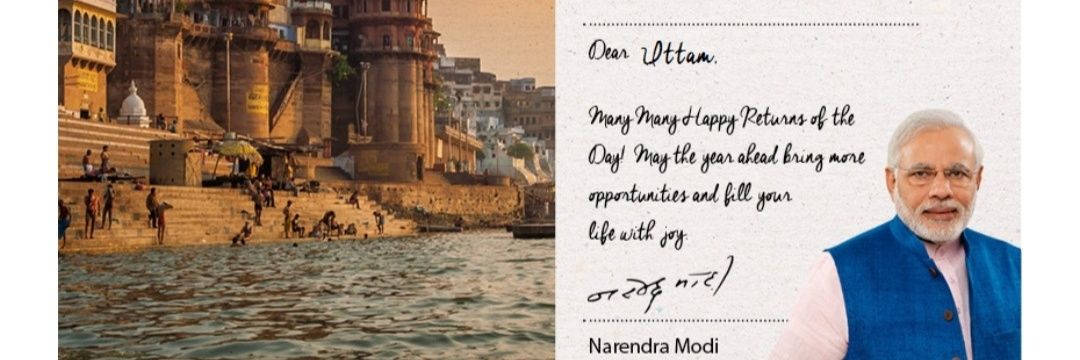 Dear Uttam.
Many Many Happy Returns of the
Day! May the year ahead bring more
opportunities and fill your
life with joy.
नरेन्द्र मोदी
Narendra Modi